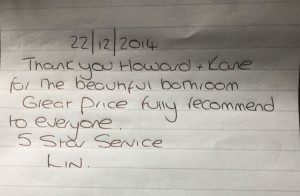 22/12/2014
Thank you Howard + Kane
for the beautiful bathroom
Great Price fully recommend
to everyone.
5 Star Service
Lin.